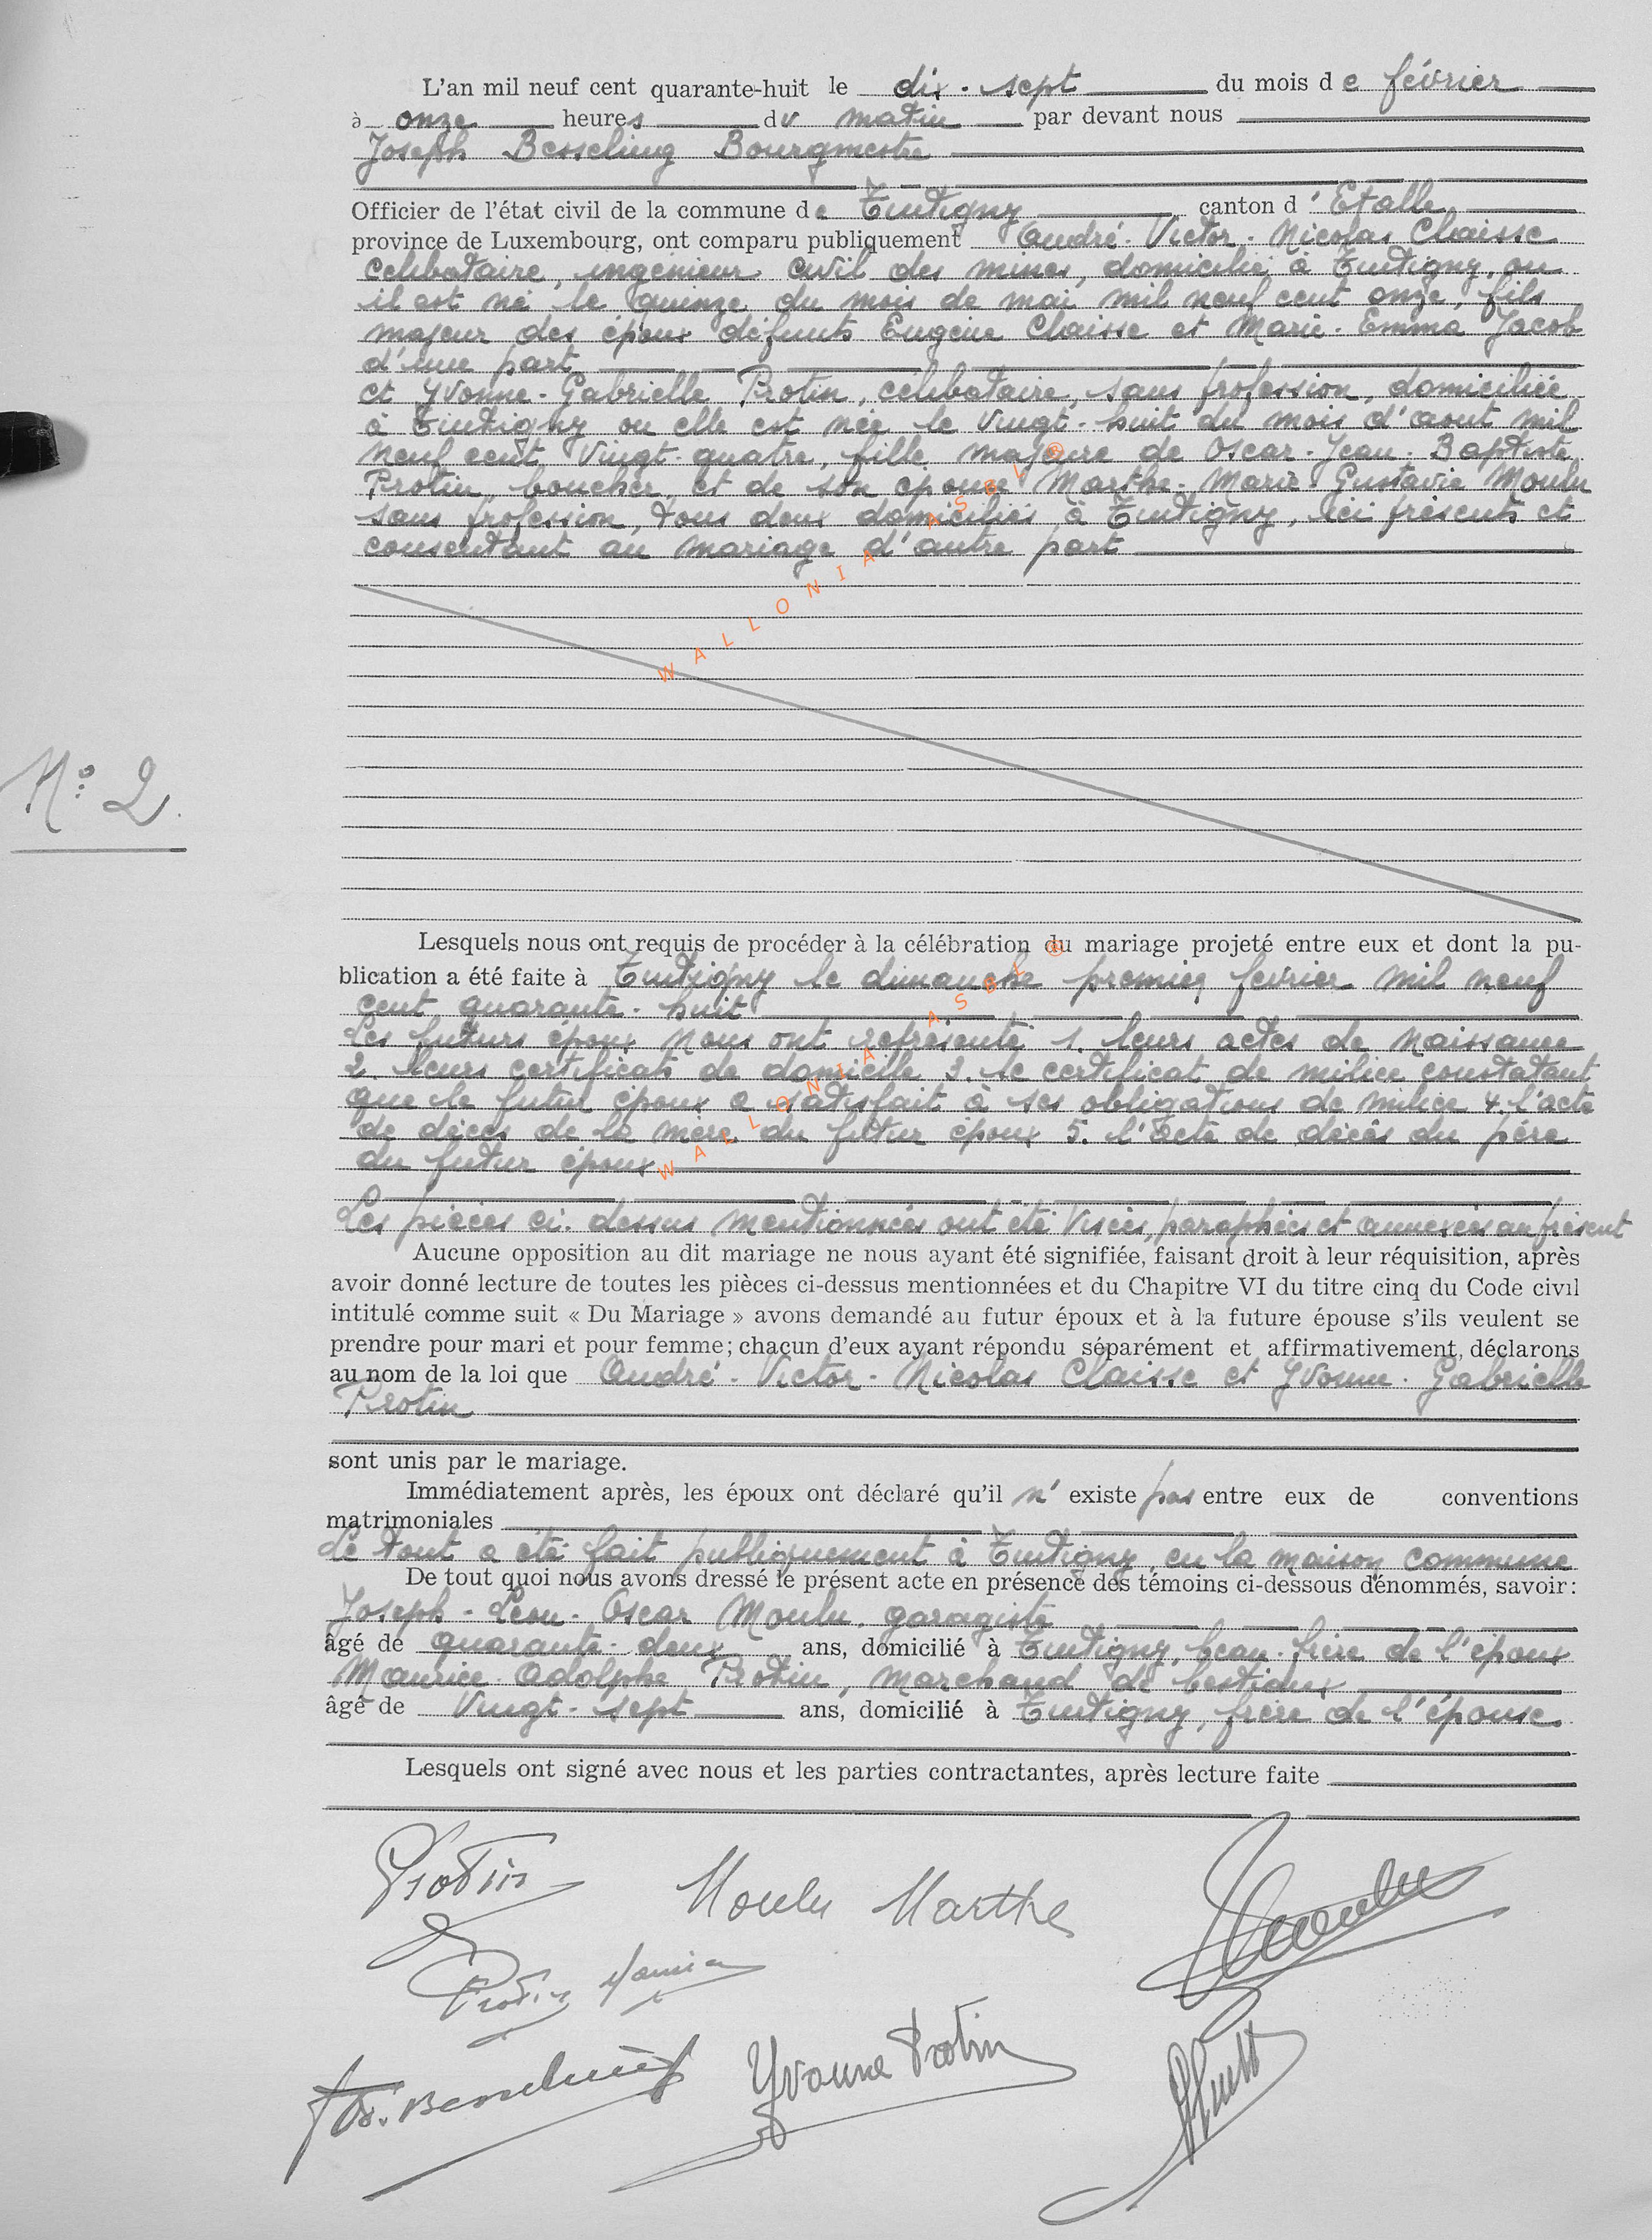 L'an mil neuf cent quarante-huit le dix-sept du mois de février
à onze heures du matin par devant nous
Joseph Besseling Bourgmestre
Officier de l'état civil de la commune de Tintigny canton d'Etalle
province de Luxembourg, ont comparu publiquement André-Victor-Nicolas Claisse
celibataire, ingénieur civil des mines, domicilié à Tintigny, ou
il est né le quinze du mois de mai mil neuf cent onze, fils
majeur des époux défunts Eugène Claisse et Marie-Emma Jacob
d'une part
et Yvonne-Gabrielle Protin, célibataire, sans profession, domiciliée
à Tintigny ou elle est née le vingt-huit du mois d'aout mil
neuf cent vingt-quatre, fille majeure de Oscar-Jean-Baptiste
Protin, boucher, et de son épouse Marthe-Marie-Gustavie Moulu
sans profession, tous deux domiciliés à Tintigny, ici présents et
consentant au mariage d'autre part
WALLONIA ASBL ®
N° 2.
Lesquels nous ont requis de procéder à la célébration du mariage projeté entre eux et dont la pu-
blication a été faite à Tintigny le dimanche premier février mil neuf
cent quarante-huit
Les futurs époux nous ont représenté 1. leurs actes de naissance
2. leurs certificats de domicile 3. le certificat de milice constatant
que le futur époux a satisfait à ses obligations de milice 4. l'acte
de décès de la mère du futur époux 5. l'acte de décès du père
du futur époux
WALLONIA ASBL ®
Les pièces ci-dessus mentionnées ont été visées, paraphées et annexées au présent
Aucune opposition au dit mariage ne nous ayant été signifiée, faisant droit à leur réquisition, après
avoir donné lecture de toutes les pièces ci-dessus mentionnées et du Chapitre VI du titre cinq du Code civil
intitulé comme suit « Du Mariage » avons demandé au futur époux et à la future épouse s'ils veulent se
prendre pour mari et pour femme; chacun d'eux ayant répondu séparément et affirmativement, déclarons
au nom de la loi que André-Victor-Nicolas Claisse et Yvonne-Gabrielle
Protin
sont unis par le mariage.
Immédiatement après, les époux ont déclaré qu'il n'existe pas entre eux de conventions
matrimoniales
Le tout a été fait publiquement à Tintigny, en la maison commune
De tout quoi nous avons dressé le présent acte en présence des témoins ci-dessous dénommés, savoir:
Joseph-Léon-Oscar Moulu, garagiste
âgé de quarante-deux ans, domicilié à Tintigny, beau-frère de l'époux
Maurice Adolphe Protin, marchand de bestiaux
âgé de vingt-sept ans, domicilié à Tintigny, frère de l'épouse
Lesquels ont signé avec nous et les parties contractantes, après lecture faite
Protin Moulu Marthe Moulu
Protin
Jos. Besseling Yvonne Protin